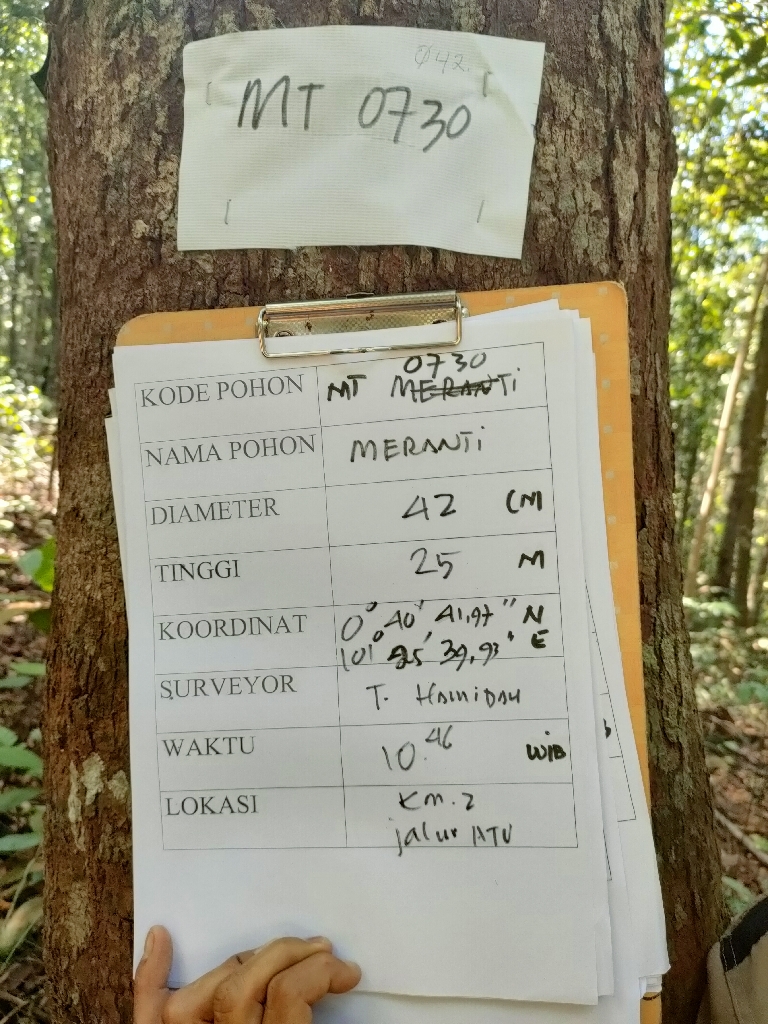 042
MT 0730
KODE POHON MT 0730 MERANTi
NAMA POHON MERANTi
DIAMETER 42 CM
TINGGI 25 M
KOORDINAT 0° 40' 41,97" N
101° 25' 39,93" E
SURVEYOR T.
WAKTU 10.46 WIB
LOKASI Km. 2
jalur